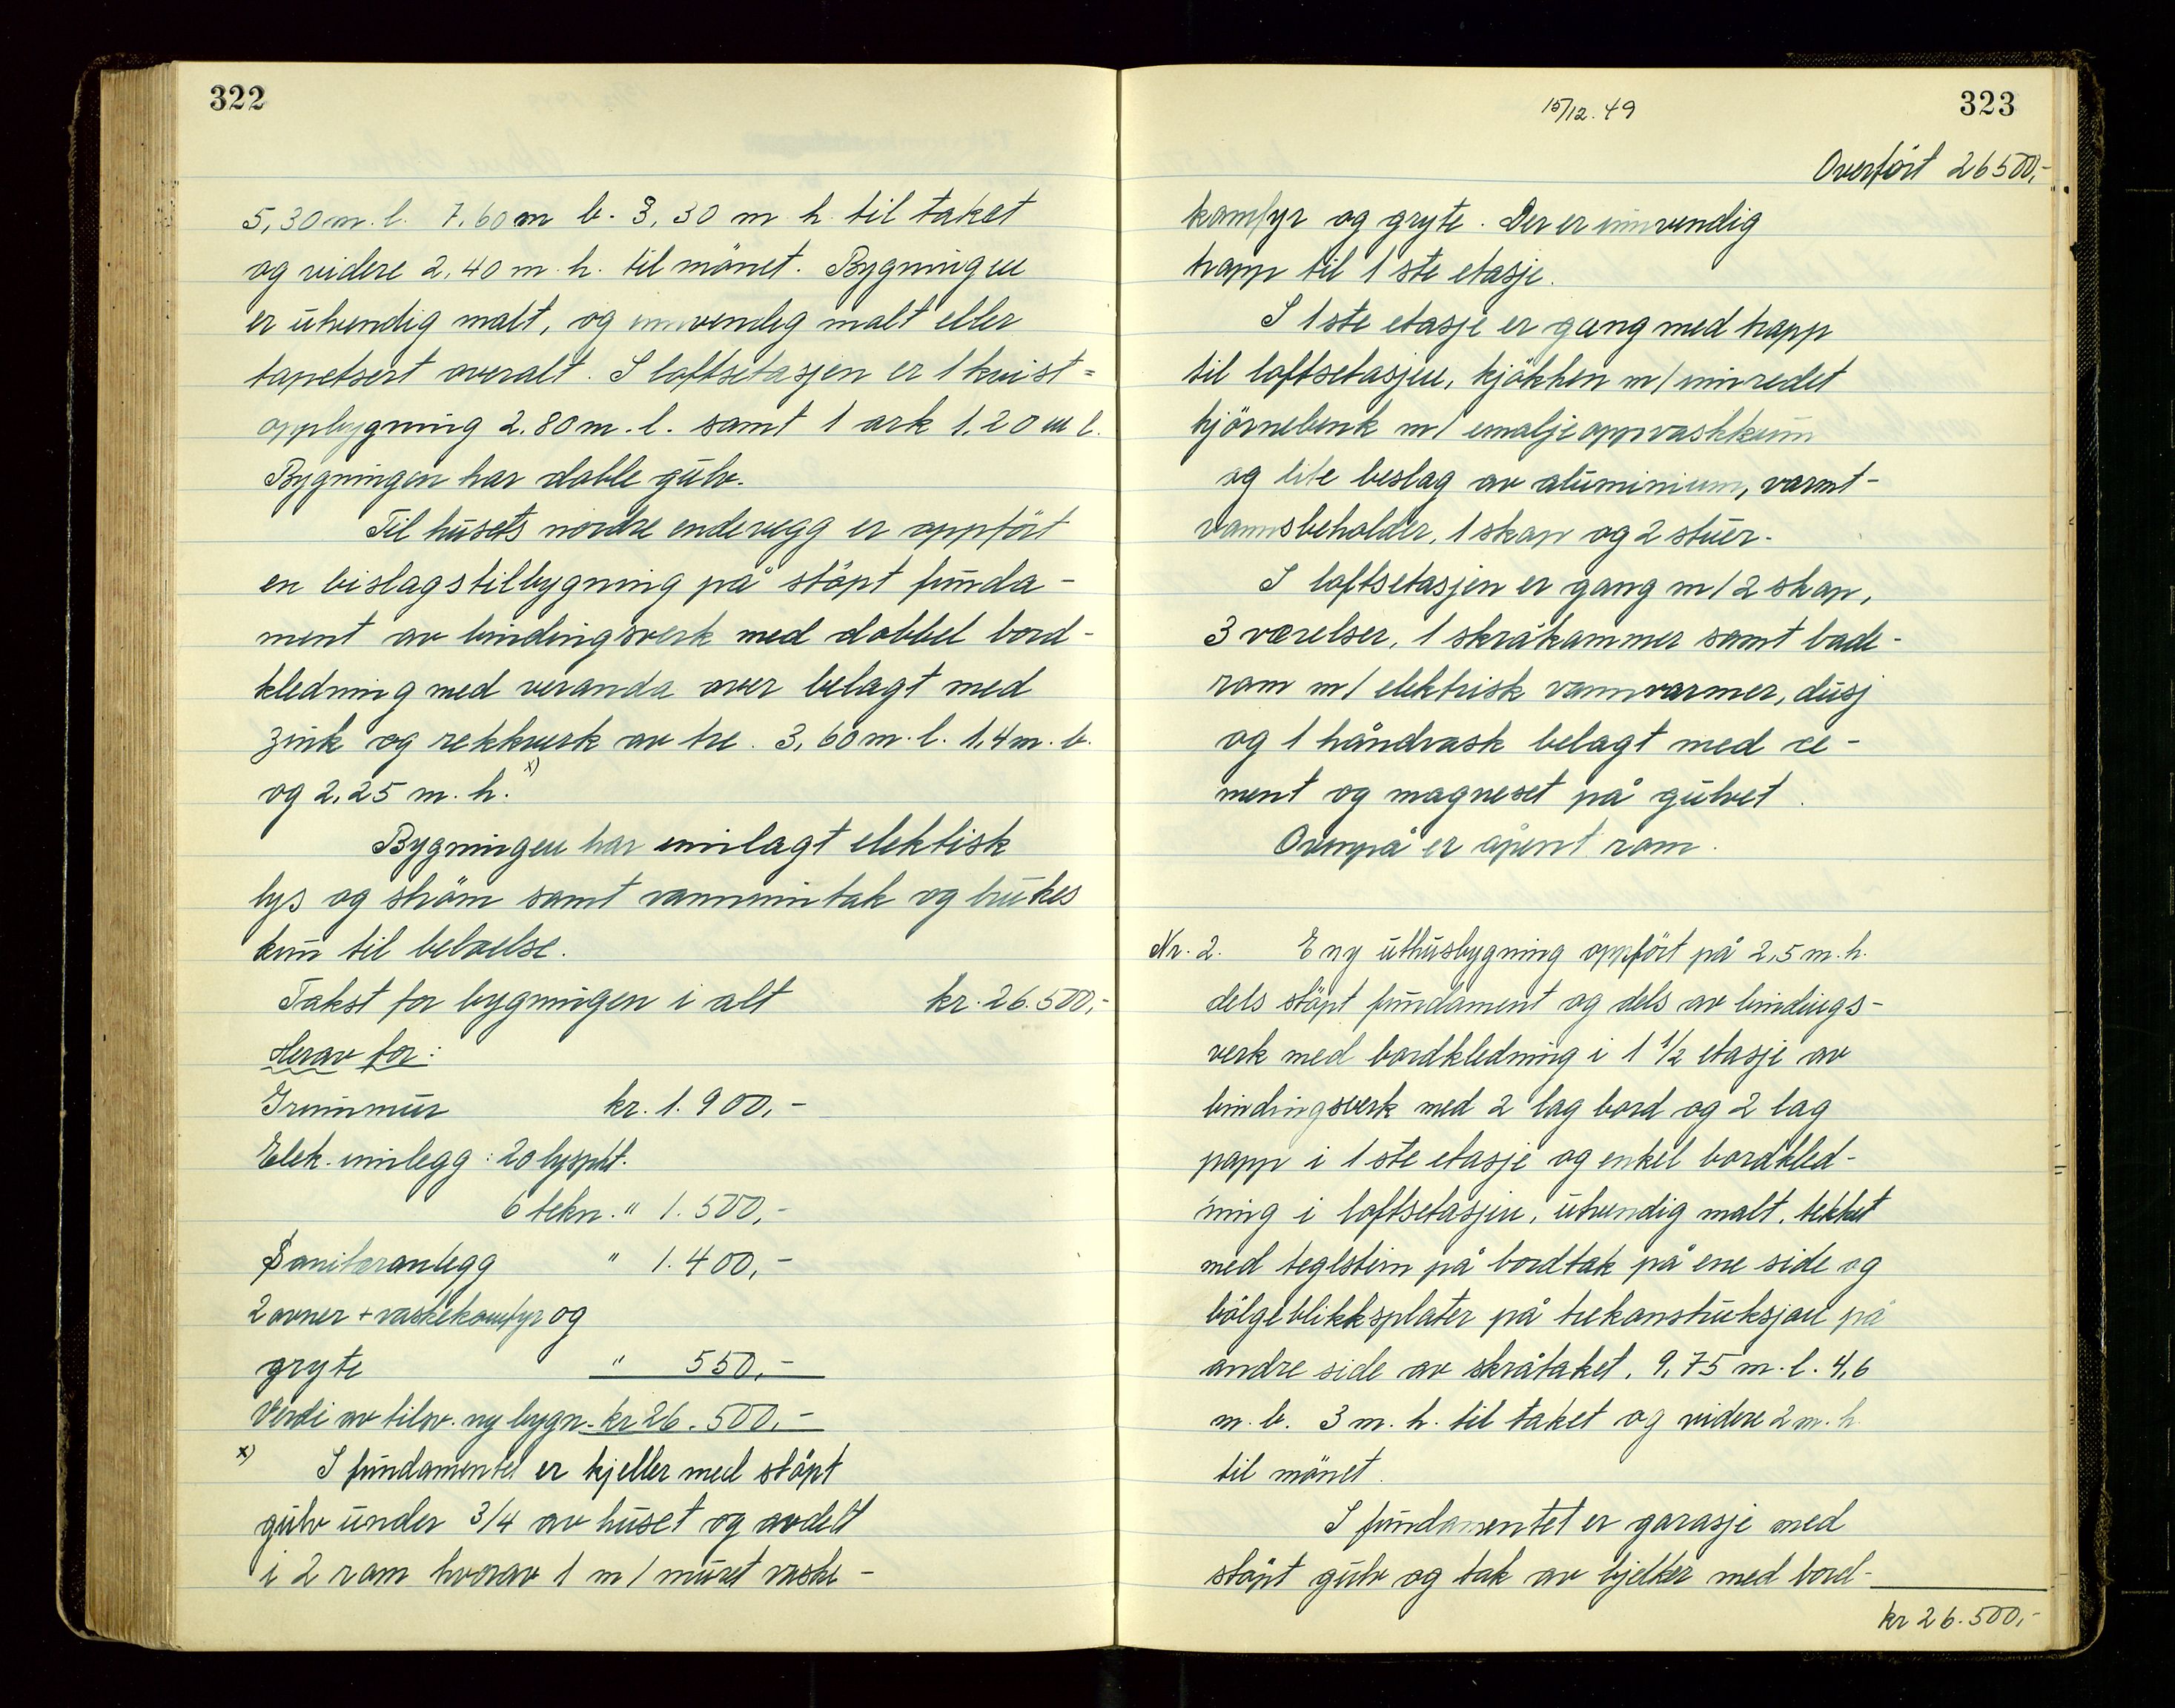 322
5,30 m. l. 7,60 m b. 3,30 m h. til taket
og videre 2,40 m. h. til mönet. Bygningen
er utvendig malt, og innvendig malt eller
tapetsert overalt. I loftsetasjen er 1 kvist=
oppbygning 2.80 m. l. samt 1 ark 1,20 m l.
Bygningen har doble gulv.
Til husets nordre endevegg er oppfört
en bislagstilbygning på stöpt funda-
ment av bindingsverk med dobbel bord-
kledning med veranda over belagt med
zink og rekkverk av tre. 3,60 m. l. 1,4 m. b.
og 2,25 m. h. x)
Bygningen har innlagt elektisk
lys og ström samt vanninntak og brukes
kun til beboelse.
Takst for bygningen i alt kr. 26.500,-
Herav for:
Grunnmur kr. 1.900,-
Elek. innlegg: 20 lyspkt.
6 tekn. " 1.500,-
Sanitæranlegg " 1.400,-
2 ovner + vaskekomfyr og
gryte " 550,-
Verdi av tilsv. ny bygn. kr 26.500,-
x) I fundamentet er kjeller med stöpt
gulv under 3/4 av huset og avdelt
i 2 rom hvorav 1 m/ muret vaske-
323
15/12. 49
Overfört 26500,-
komfyr og gryte. Der er innvendig
trapp til 1ste etasje.
I 1ste etasje er gang med trapp
til loftsetasjen, kjökken m/ innredet
hjörnebenk m/ emalje oppvaskkum
og lite beslag av aluminium, varmt-
vannsbeholder, 1 skap og 2 stuer.
I loftsetasjen er gang m/ 2 skap,
3 værelser, 1 skråkammer samt bade-
rom m/ elektrisk vannvarmer, dusj
og 1 håndvask belagt med ce-
ment og magneset på gulvet.
Ovenpå er åpent rom.
Nr. 2. E ny uthusbygning oppfört på 2,5 m. h.
dels stöpt fundament og dels av bindings-
verk med bordkledning i 1 1/2 etasje av
bindingsverk med 2 lag bord og 2 lag
papp i 1ste etasje og enkel bordkled-
ning i loftsetasjen, utvendig malt, tekket
med teglstein på bordtak på ene side og
bölgeblikksplater på trekonstruksjon på
andre side av skråtaket. 9,75 m. l. 4,6
m. b. 3 m. h. til taket og videre 2 m. h.
til mönet.
I fundamentet er garasje med
stöpt gulv og tak av bjelker med bord-
kr 26.500,-